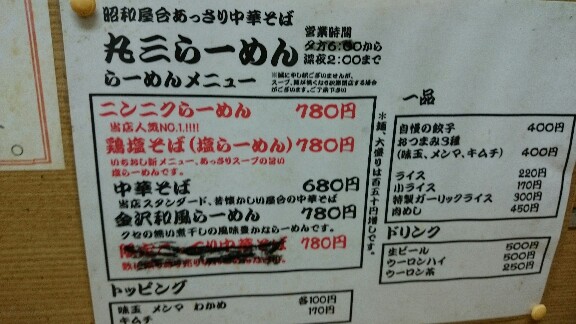 昭和屋台あっさり中華そば
丸三らーめん
らーめんメニュー
営業時間
夕方6:00から
深夜2:00まで
※誠に申し訳ございませんが、
スープ、麺が無くなり次第閉店する場合
がございます。ご了承下さい
ニンニクらーめん 780円
当店人気NO.1.!!!!
鶏塩そば(塩らーめん) 780円
いちおし新メニュー、あっさりスープの旨い
塩らーめんです。
中華そば 680円
当店スタンダード、昔懐かしい屋台の中華そば
金沢和風らーめん 780円
クセの無い煮干しの風味豊かならーめんです。
中華そば 780円
*麺、大盛りは百五十円増しです。
トッピング
味玉 メンマ わかめ 各100円
キムチ 170円
一品
自慢の餃子 400円
おつまみ3種
(味玉、メンマ、キムチ) 400円
ライス 220円
小ライス 170円
特製ガーリックライス 300円
肉めし 450円
ドリンク
生ビール 500円
ウーロンハイ 500円
ウーロン茶 250円